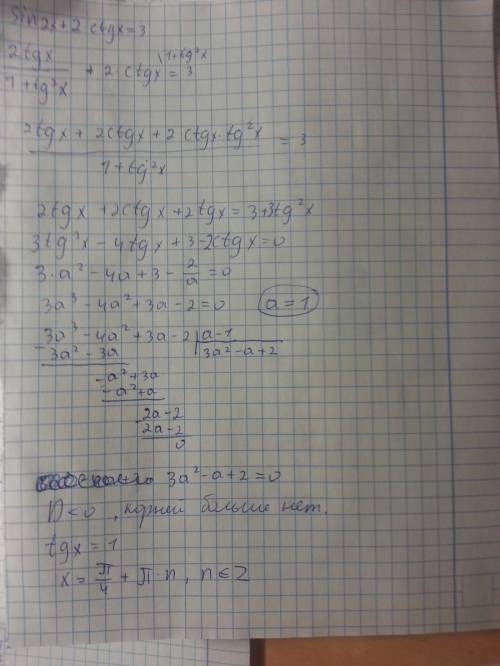 Sin2x+2ctgx=3
2tgx/1+tg²x + 2·ctgx\1+tg²x = 3
2tgx + 2ctgx + 2ctgx·tg²x/1+tg²x = 3
2tgx +2ctgx+2tgx=3+3tg²x
3tg²x - 4tgx + 3-2ctgx=0
3·a² - 4a + 3 - 2/a = 0
3a³ - 4a² + 3a - 2 = 0 a = 1
- 3a³ - 4a² + 3a - 2 | a - 1
3a² - 3a 3a² - a + 2
- -a² + 3a
-a² + a
- 2a - 2
2a - 2
0
3a² - a + 2 = 0
D < 0, корней больше нет.
tgx = 1
x = π/4 + π·n, n∈Z